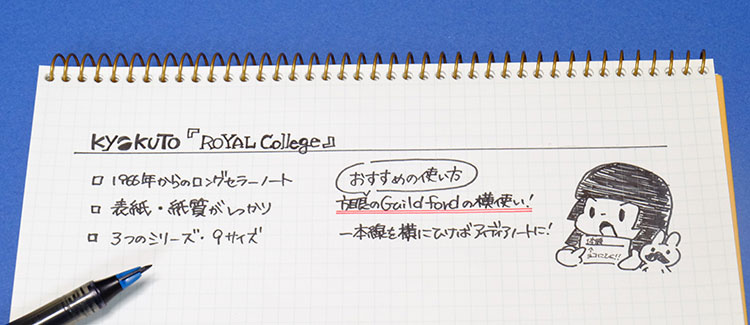 KYOKUTO『ROYAL College』
1966年からのロングセラーノート
表紙・紙質がしっかり
3つのシリーズ・9サイズ
おすすめの使い方
方眼のGuildfordの横使い!
一本線を横にひけばアイディアノートに!